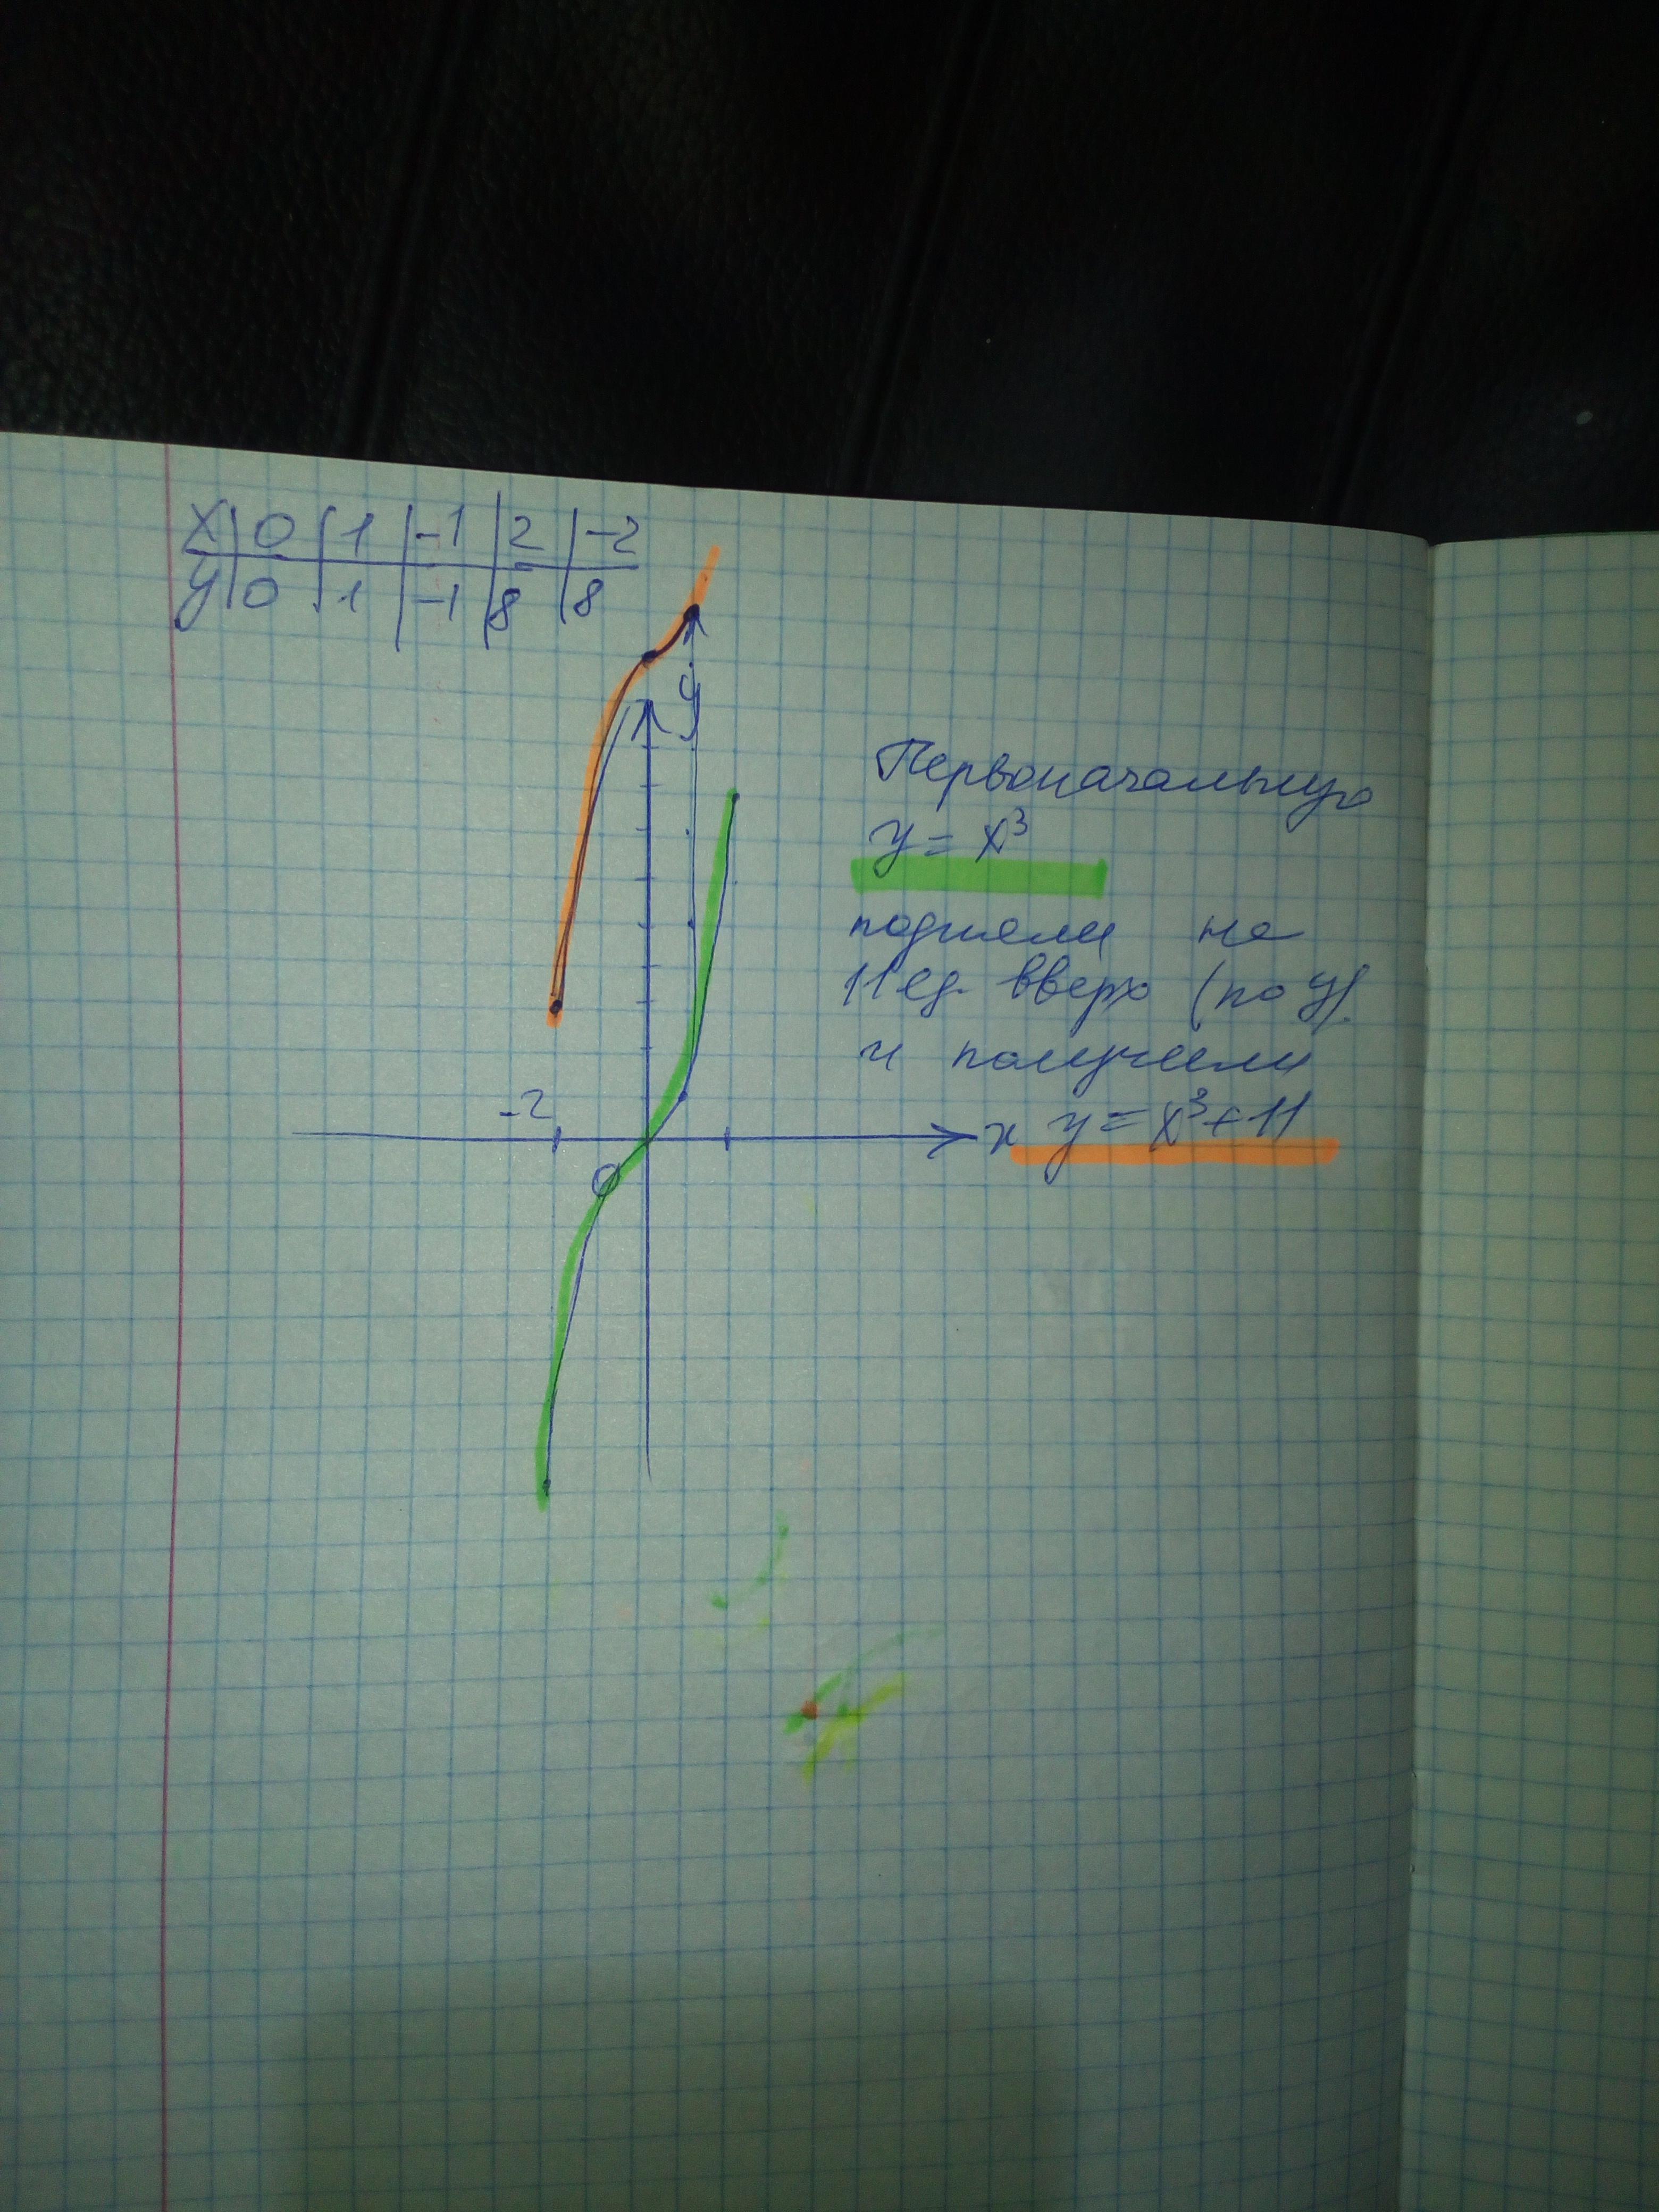 x | 0 | 1 | -1 | 2 | -2
y | 0 | 1 | -1 | 8 | 8
y
Первоначальную
y = x³
подняли на
11 ед. вверх (по y)
и получили
-2
x y = x³+11
0